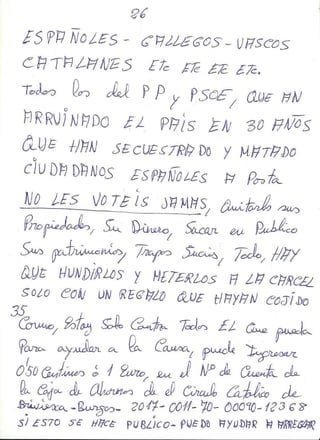 26
ESPAÑOLES - GALLEGOS - VASCOS
CATALANES Etc Etc Etc Etc.
Todos los del PP y PSOE, QUE AN
ARRUINADO EL PAÍS EN 30 AÑOS
QUE HAN SECUESTRADO Y MATADO
CIUDADANOS ESPAÑOLES A Posta
NO LES VOTEIS JAMAS, Quitarlos sus
Propiedades, Su Dinero, Sacar en Publico
Sus patrimonios, Trapos Sucios, Todo, HAY
QUE HUNDIRLOS Y METERLOS A LA CARCEL
SOLO CON UN REGALO QUE HAYAN COJIDO
35, Como, Estoy Solo Contra Todos EL Que pueda
Para ayudar a la Causa, puede Ingresar
0'50 Centimos ó 1 Euro, en el Nº de Cuenta de
la Caja de Ahorros de el Circulo Catolico de
Briviesca - Burgos - 2017-0011-70-00090-12368
SI ESTO SE HACE PUBLICO - PUEDO AYUDAR A ARREGLAR